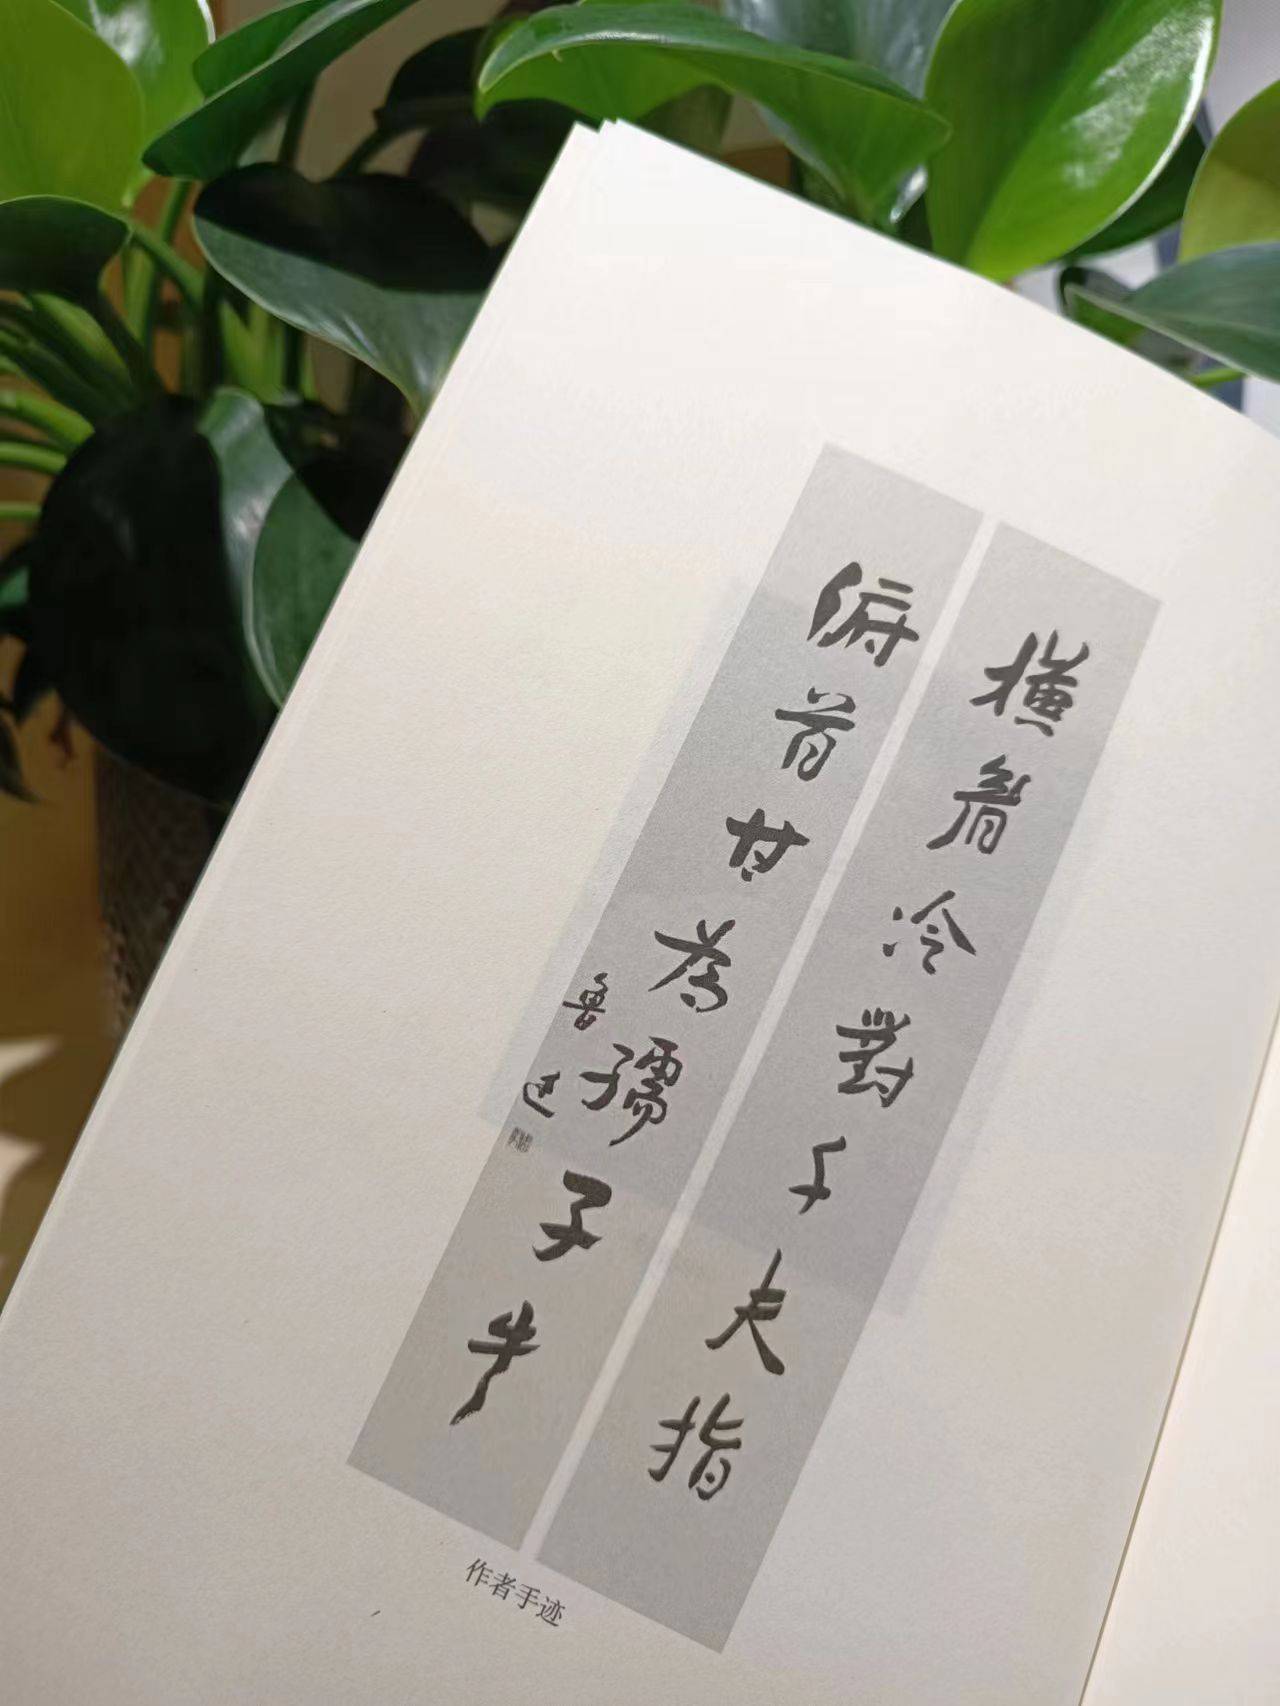 橫眉冷對千夫指
俯首甘為孺子牛
魯迅
作者手迹